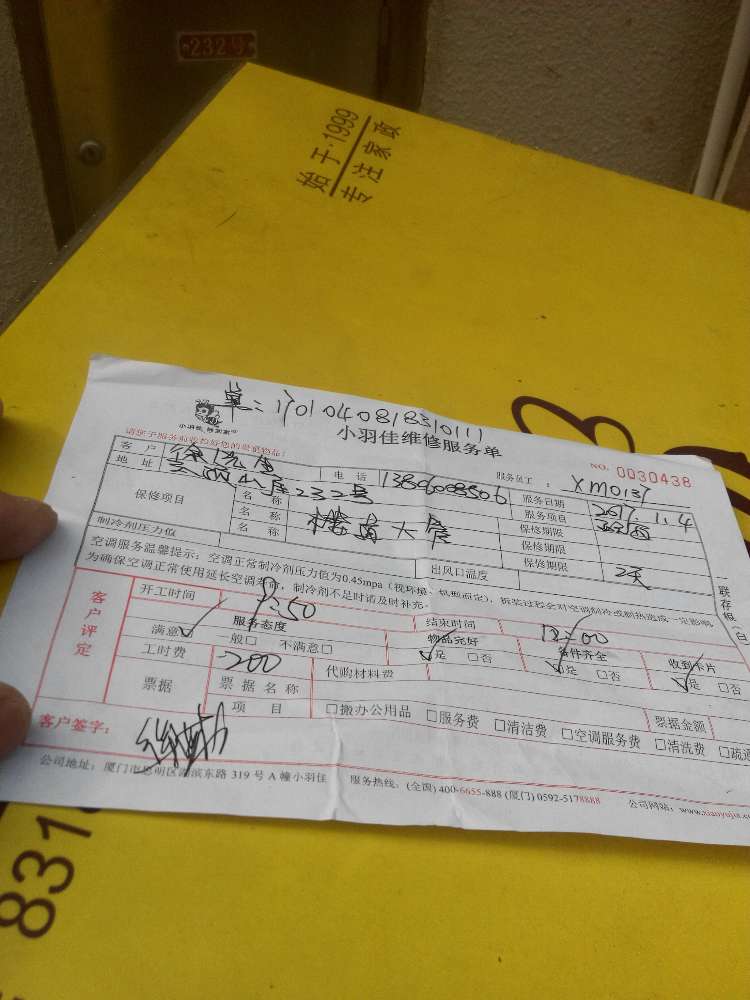 232号
始于·1999
专注家政
单: 170104081831011
小羽佳维修服务单
请您于服务前收拾好您的贵重物品!
服务员工: XM0137
NO. 0030438
客户
电话
服务日期 2017.1.4
地址 232号
服务项目
保修项目
名称
保修期限
名称
保修期限
名称
保修期限 2天
制冷剂压力值
出风口温度
空调服务温馨提示:空调正常制冷剂压力值为0.45mpa(视环境、机型而定),拆装过程会对空调制冷或制热造成一定影响
为确保空调正常使用延长空调寿命,制冷剂不足时请及时补充。
客户评定
开工时间
结束时间
服务态度
物品完好
备件齐全
收到卡片
满意☑ 一般□ 不满意□
☑是 □否
☑是 □否
☑是 □否
工时费 200
代购材料费
票据
票据名称
票据金额
项目
□搬办公用品 □服务费 □清洁费 □空调服务费 □清洗费 □疏通
客户签字:
公司地址:厦门市思明区湖滨东路319号A幢小羽佳 服务热线:(全国)400-6655-888 (厦门)0592-5178888 公司网站:www.xiaoyujia.co
831